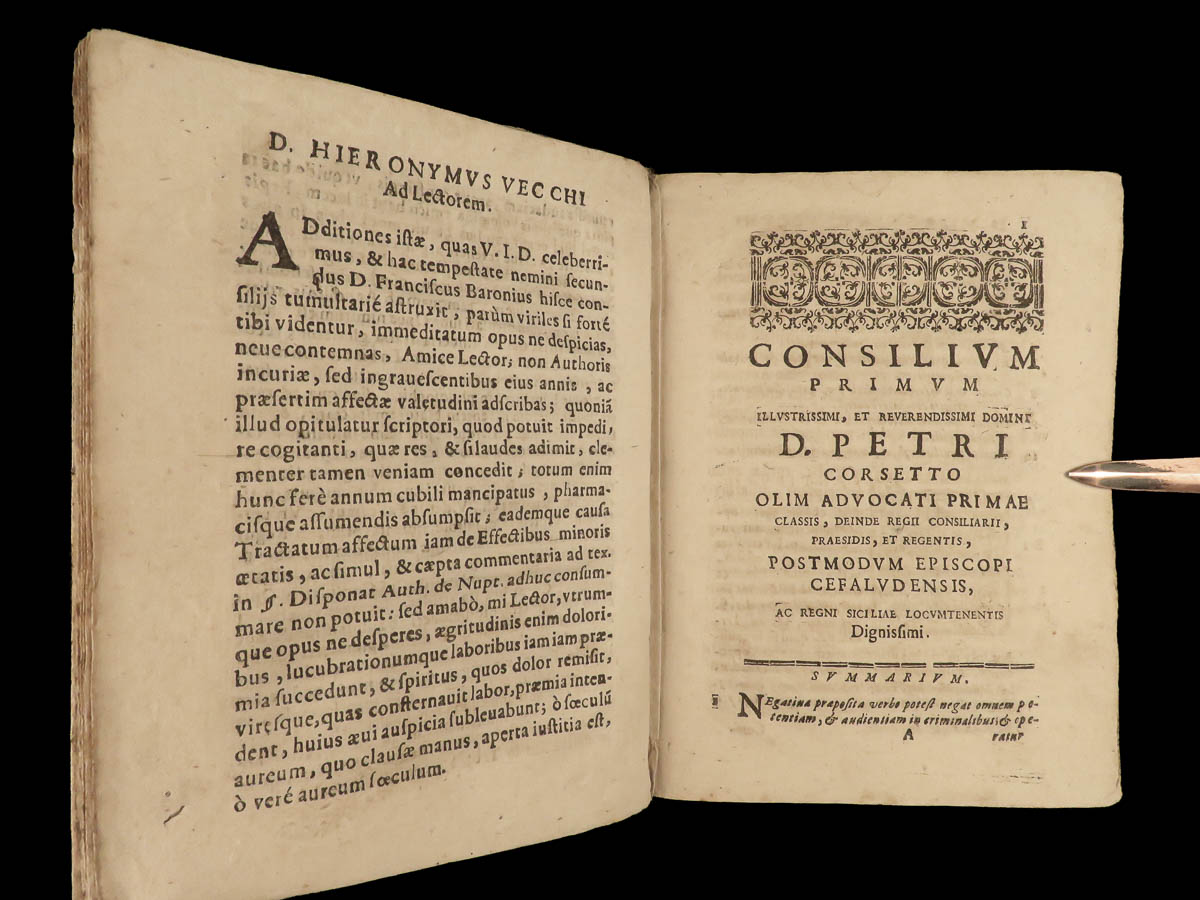 D. HIERONYMVS VECCHI
Ad Lectorem.
ADditiones istæ, quas V. I. D. celeberri-
mus, & hac tempestate nemini secun-
dus D. Franciscus Baronius hisce con-
silijs tumultarié astruxit, parùm viriles si forté
tibi videntur, immeditatum opus ne despicias,
neue contemnas, Amice Lector; non Authoris
incuriæ, sed ingrauescentibus eius annis, ac
præsertim affectæ valetudini adscribas; quoniã
illud opitulatur scriptori, quod potuit impedi,
re cogitanti, quæ res, & silaudes adimit, cle-
menter tamen veniam concedit; totum enim
hunc ferè annum cubili mancipatus, pharma-
cisque assumendis absumpsit; eademque causa
Tractatum affectum iam de Effectibus minoris
ætatis, ac simul, & cæpta commentaria ad tex.
in §. Disponat Auth. de Nupt. adhuc consum-
mare non potuit: sed amabò, mi Lector, vtrum-
que opus ne desperes, ægritudinis enim dolori-
bus, lucubrationumque laboribus iam iam præ-
mia succedunt, & spiritus, quos dolor remisit,
viresque, quas consternauit labor, præmia inten-
dent, huius æui auspicia subleuabunt; ò sœculũ
aureum, quo clausæ manus, aperta iustitia est,
ò veré aureum sœculum.
1
CONSILIVM
PRIMVM
ILLVSTRISSIMI, ET REVERENDISSIMI DOMINI
D. PETRI
CORSETTO
OLIM ADVOCATI PRIMAE
CLASSIS, DEINDE REGII CONSILIARII,
PRAESIDIS, ET REGENTIS,
POSTMODVM EPISCOPI
CEFALVDENSIS,
AC REGNI SICILIAE LOCVMTENENTIS
Dignissimi.
SVMMARIVM.
1 NEgatiua præposita verbo potest negat omnem po-
tentiam, & audientiam in criminalibus; & ope-
A ratur